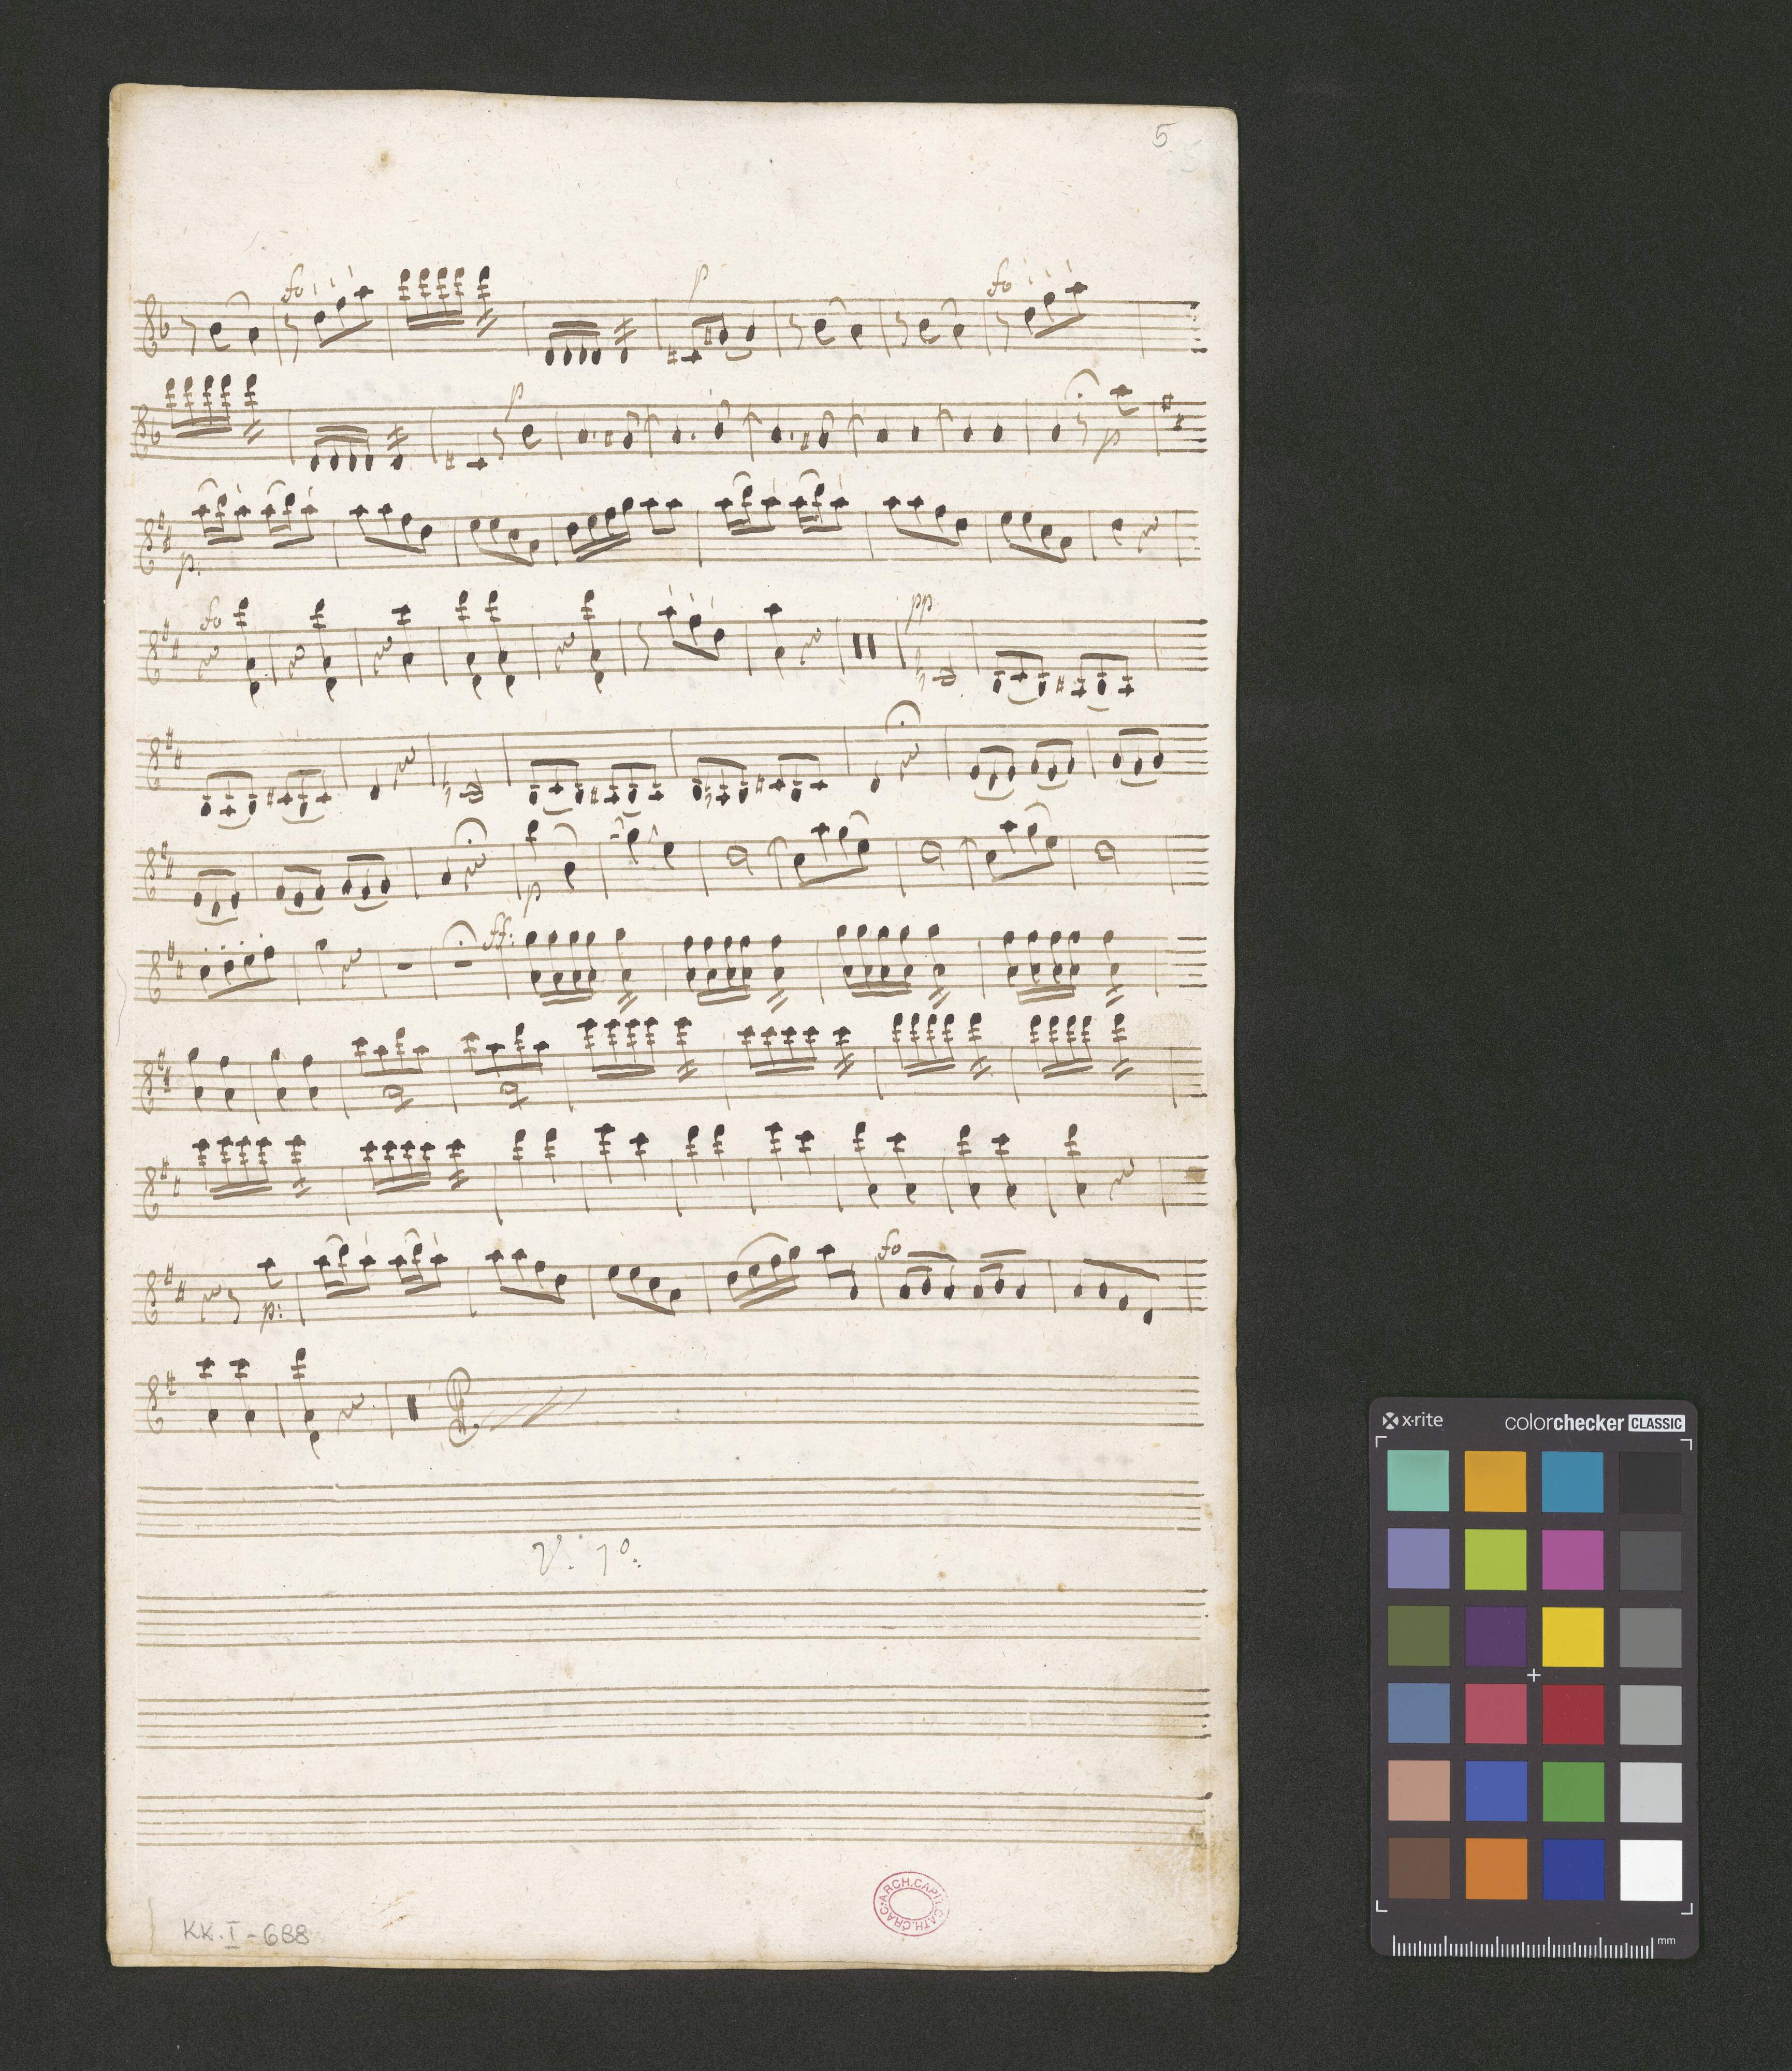 5
fo p fo
p p
p.
fo pp
p
ff:
p: fo
V: 1º:
ARCH.CAPIT.CATH.CRAC.
KK.I-688
x-rite colorchecker CLASSIC
mm